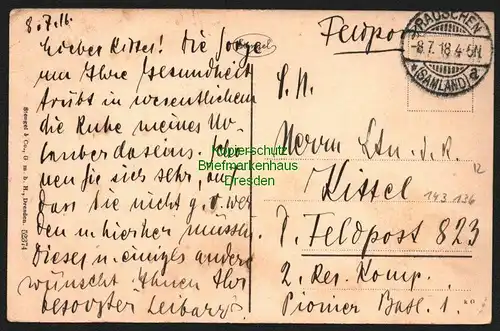 8.7.16.
Lieber Kittel! Die Sorge
um Ihre Gesundheit
trübt in wesentlichem
die Ruhe meines
nen Sie sich sehr, auf
dass Sie nicht
den u. hierher müssen.
Dieses u. einiges andere
wünscht Ihnen Ihr
besorgter Leibarzt
Stengel & Co., G. m. b. H., Dresden. 02974
Feldpost
RAUSCHEN
-8.7.18.4-5N.
* (SAMLAND) a
S. H.
Herrn Ltn. d. R.
12
Kittel
143 136
Feldpost 823
2. Res. Komp.
Pionier Batl. 1.
Kopierschutz
Briefmarkenhaus
Dresden